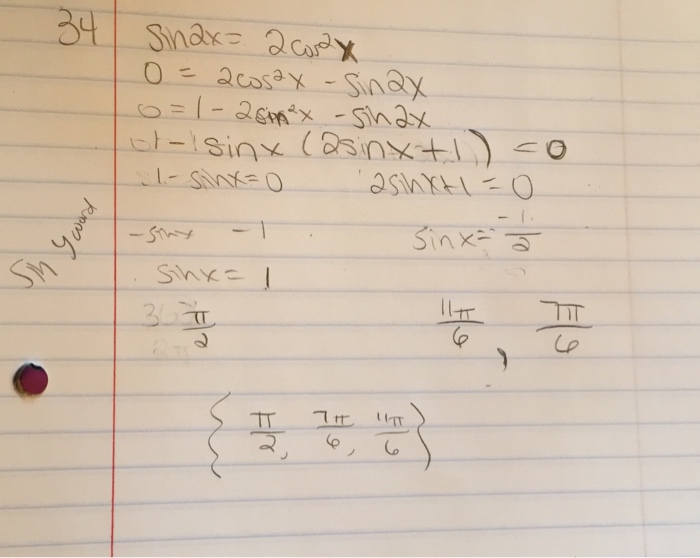 34 sin2x = 2cos²x
0 = 2cos²x - sin2x
0 = 1 - 2sin²x - sin2x
1 - 1 sinx (2sinx + 1) = 0
1 - sinx = 0 2sinx+1 = 0
-sinx -1 sinx = -1/2
sinx = 1
π/2 11π/6 , 7π/6
{ π/2, 7π/6, 11π/6 }
sin y coord